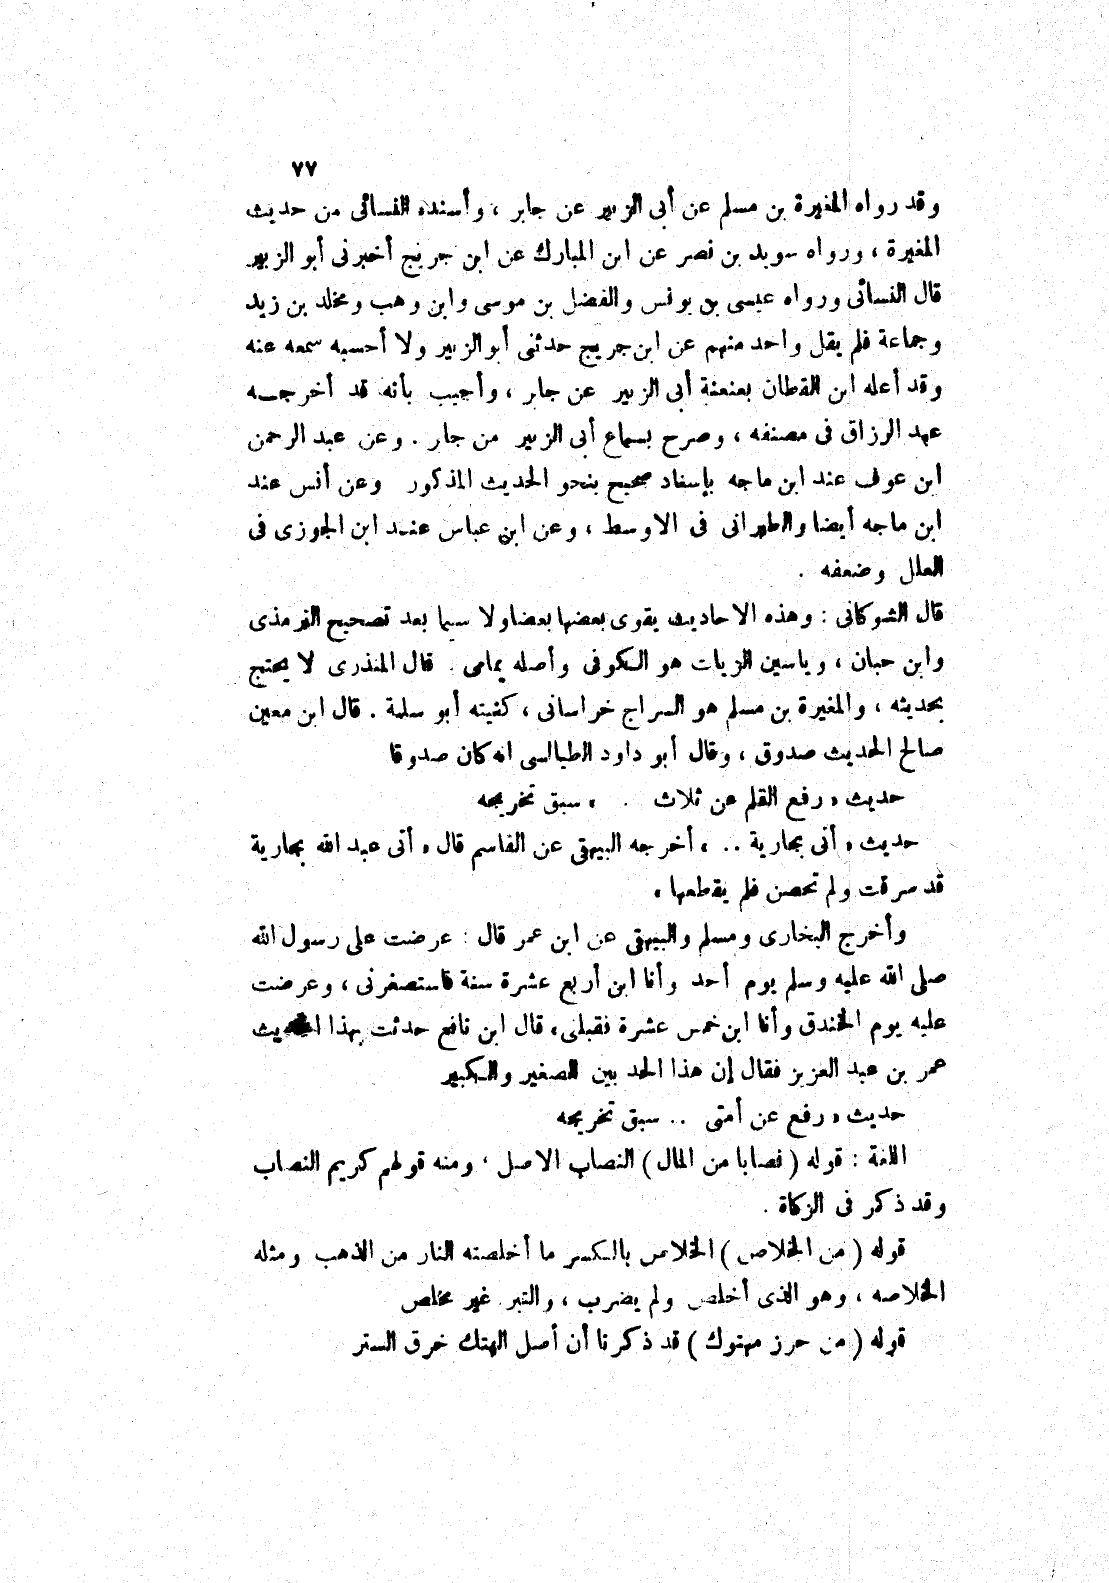 ٧٧
وقد رواه المغيرة بن مسلم عن أبى الزبير عن جابر ، وأسنده النسائى من حديث
المغيرة ، ورواه سويد بن نصر عن ابن المبارك عن ابن جريج أخبرنى أبو الزبير
قال النسائى ورواه عيسى بن يونس والفضل بن موسى وابن وهب ومخلد بن زيد
وجماعة فلم يقل واحد منهم عن ابن جريج حدثنى أبو الزبير ولا أحسبه سمعه عنه
وقد أعله ابن القطان بعنعنة أبى الزبير عن جابر ، وأجيب بأنه قد أخرجه
عبد الرزاق فى مصنفه ، وصرح بسماع أبى الزبير من جابر . وعن عبد الرحمن
ابن عوف عند ابن ماجه بإسناد صحيح بنحو الحديث المذكور وعن أنس عند
ابن ماجه أيضا والطبرانى فى الاوسط ، وعن ابن عباس عند ابن الجوزى فى
العلل وضعفه .
قال الشوكانى : وهذه الاحاديث يقوى بعضها بعضا ولا سيما بعد تصحيح الترمذى
وابن حبان ، وياسين الزيات هو الكوفى وأصله يمامى . قال المنذرى لا يحتج
بحديثه ، والمغيرة بن مسلم هو السراج خراسانى ، كنيته أبو سلمة . قال ابن معين
صالح الحديث صدوق ، وقال أبو داود الطيالسى انه كان صدوقا
حديث « رفع القلم عن ثلاث . » سبق تخريجه
حديث « أتى بجارية .. » أخرجه البيهقى عن القاسم قال « أتى عبد الله بجارية
قد سرقت ولم تحصن فلم يقطعها »
وأخرج البخارى ومسلم والبيهقى عن ابن عمر قال : عرضت على رسول الله
صلى الله عليه وسلم يوم أحد وأنا ابن أربع عشرة سنة فاستصغرنى ، وعرضت
عليه يوم الخندق وأنا ابن خمس عشرة فقبلنى ، قال ابن نافع حدثت بهذا الحديث
عمر بن عبد العزيز فقال إن هذا الحد بين الصغير والكبير
حديث « رفع عن أمتى .. سبق تخريجه
اللغة : قوله ( نصابا من المال ) النصاب الاصل ، ومنه قولهم كريم النصاب
وقد ذكر فى الزكاة .
قوله ( من الخلاص ) الخلاص بالكسر ما أخلصته النار من الذهب ومثله
الخلاصه ، وهو الذى أخلص ولم يضرب ، والتبر غير مخلص
قوله ( من حرز مهتوك ) قد ذكرنا أن أصل الهتك خرق الستر